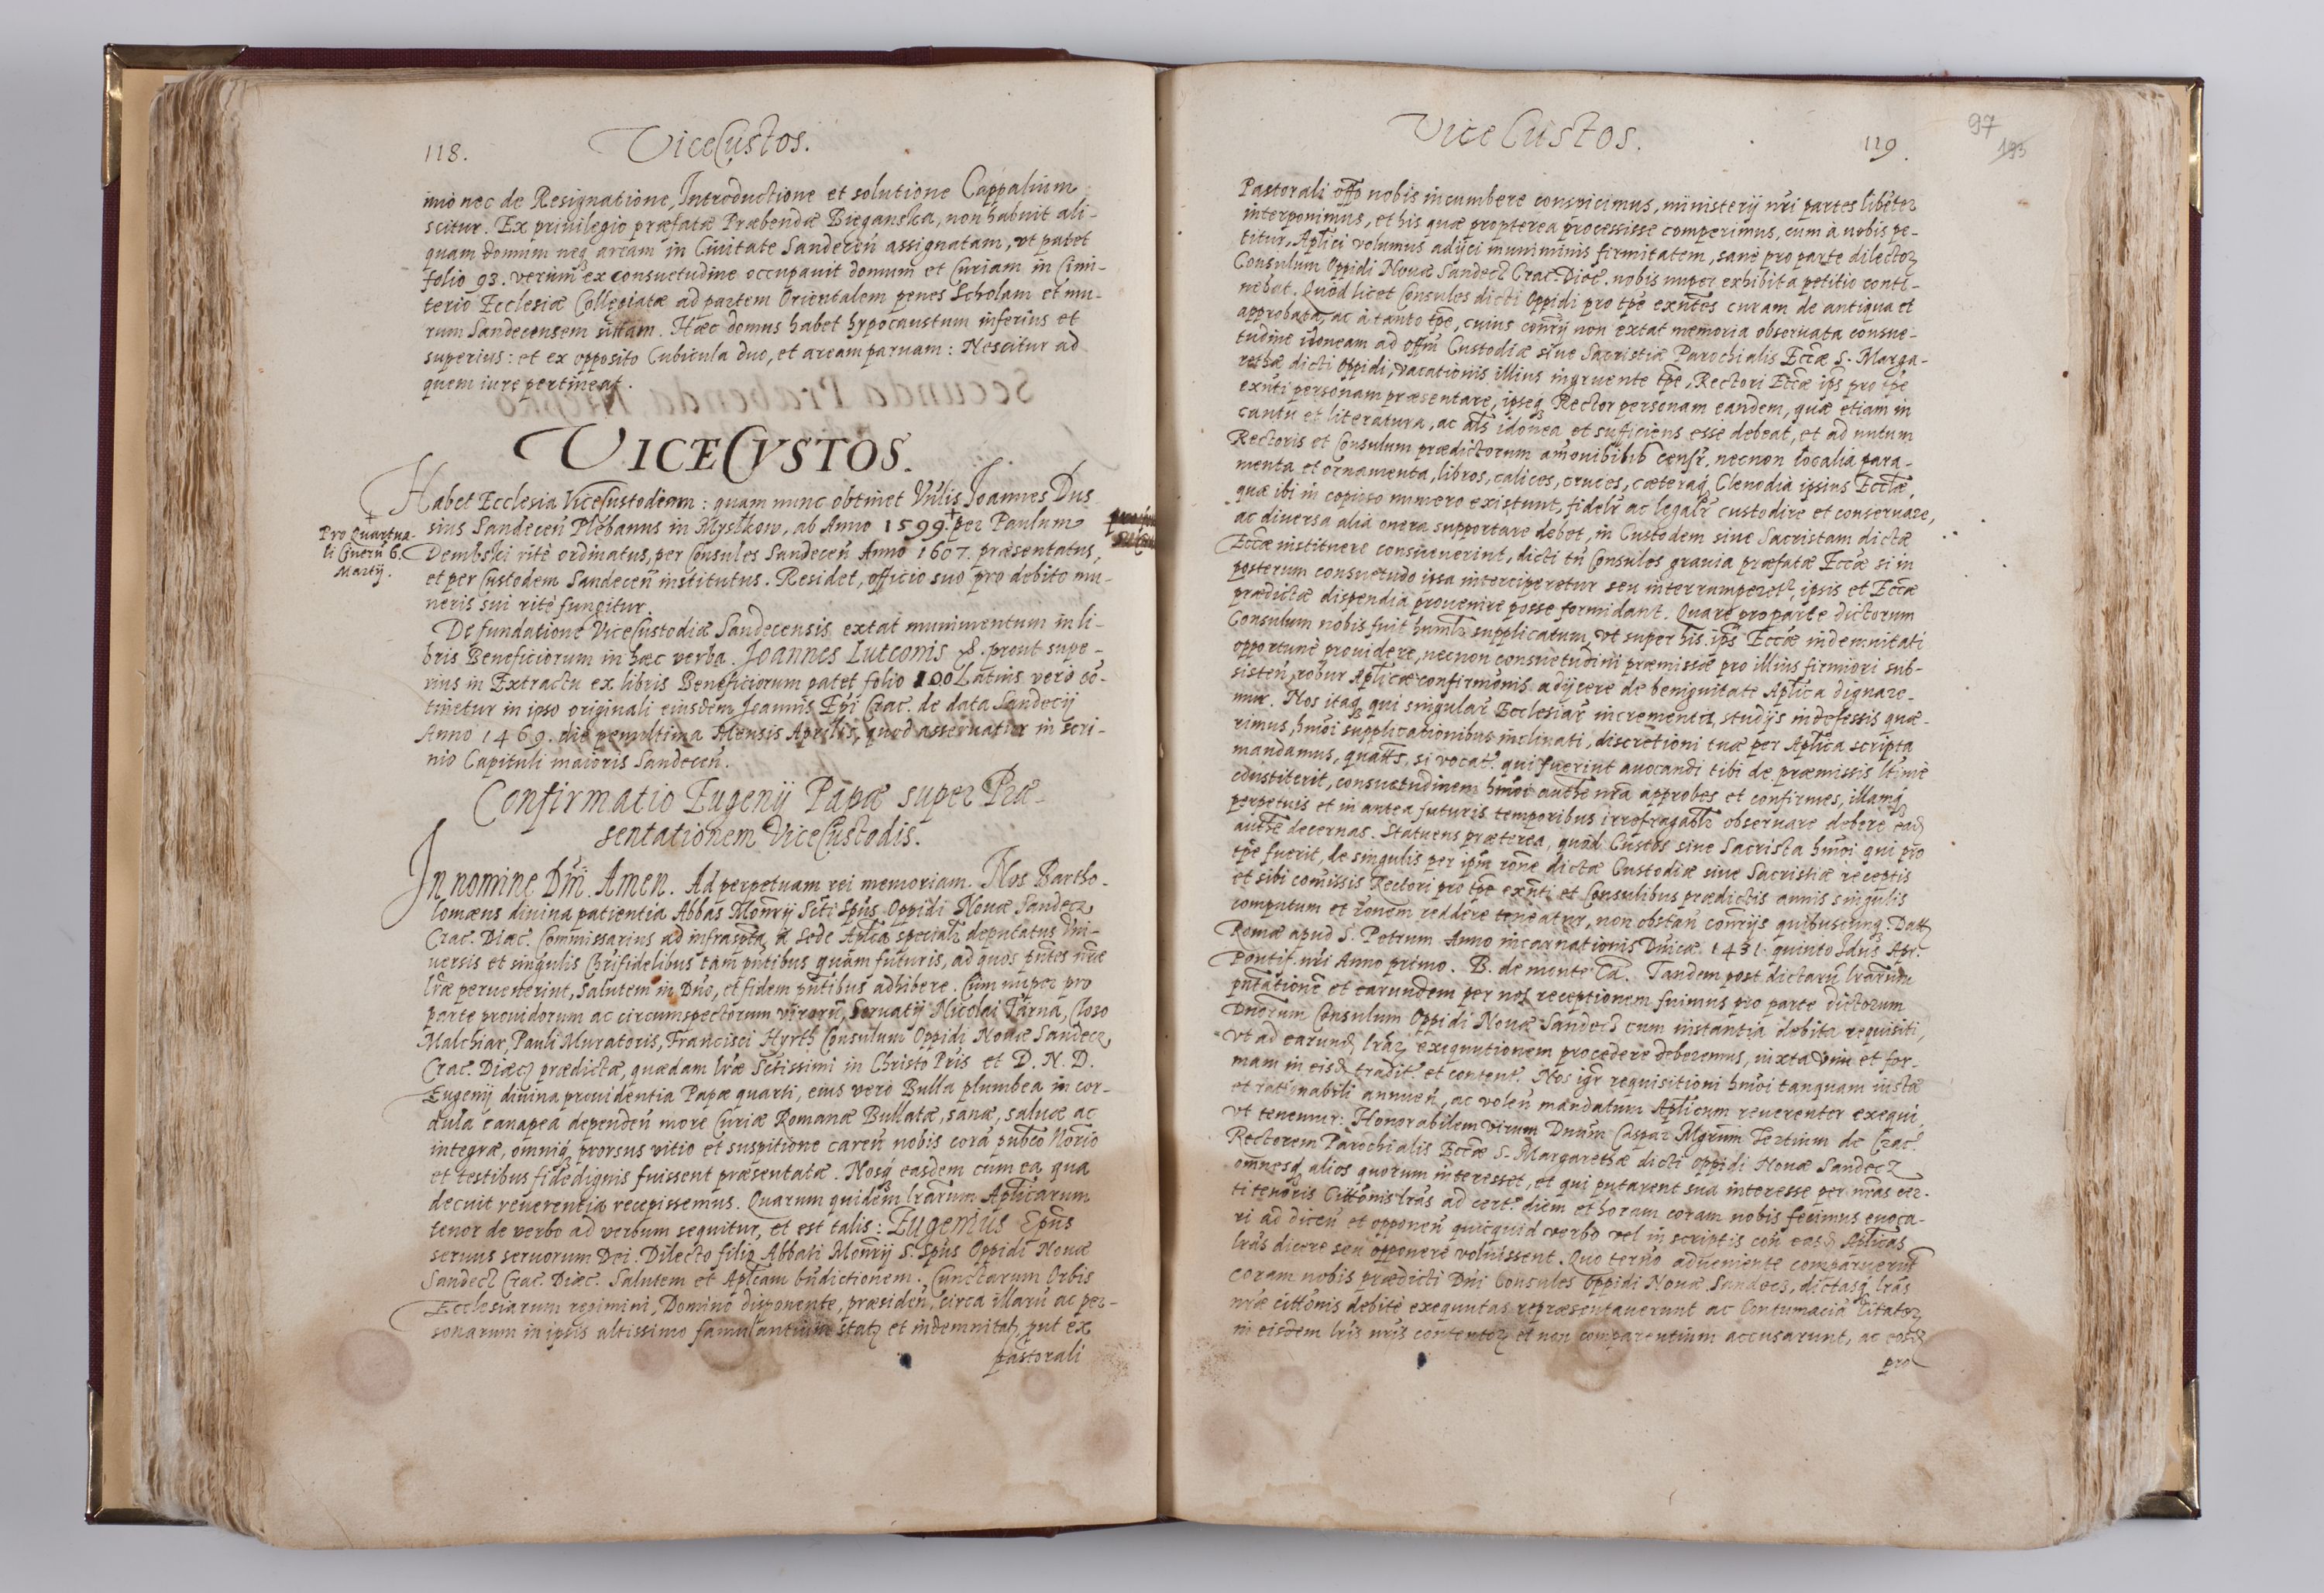 118.
ViceCustos.
imò nec de Resignatione, Introductione et solutione Cappalium
scitur. Ex priuilegio præfatæ Præbendæ Bieganska, non habuit ali-
quam domum neq aream in Ciuitate Sandecen̄ assignatam, vt patet
folio 93. verùm ex consuetudine occupauit domum et Curiam in Cimi-
terio Ecclesiæ Collegiatæ ad partem Orientalem penes Scholam et mu-
rum Sandecensem sitam. Hæc domus habet hypocaustum inferius et
superius: et ex opposito Cubicula duo, et aream paruam: Nescitur ad
quem iure pertineat.
VICECVSTOS.
Habet Ecclesia ViceCustodem: quam nunc obtinet Vn̄lis Joannes Dus
sius Sandecen̄ Plebanus in Mystkow, ab Anno 1599. + per Paulum
+
Pro Quartua-
li Cinerū 6.
Martij.
Dembski ritè ordinatus, per Consules Sandecen̄ Anno 1607. præsentatus,
et per Custodem Sandecen̄ institutus. Residet, officio suo pro debito mu-
neris sui ritè fungitur.
De fundatione ViceCustodiæ Sandecensis extat munimentum in li-
bris Beneficiorum in hæc verba. Joannes Lutconis &. prout supe-
rius in Extractu ex libris Beneficiorum patet folio 100 Latius verò cō-
tinetur in ipso originali eiusdem Joannis Epi Crac. de data Sandecij
Anno 1469. die penultima Mensis Aprilis, quod asseruatur in scri-
nio Capituli maioris Sandecen̄.
Confirmatio Eugenij Papæ super Præ-
sentationem ViceCustodis.
In nomine Dn̄i. Amen. Ad perpetuam rei memoriam. Nos Bartho-
lomæus diuina patientia Abbas Mon̄rij Scti Spūs Oppidi Nouæ Sandecz
Crac. Diæc. Commissarius ad infrascrīpta à Sede Aplīca speciali deputatus Vni-
uersis et singulis Chrīfidelibus tam pn̄tibus quàm futuris, ad quos pn̄tes nr̄æ
lrǣ peruenerint, Salutem in Dn̄o, et fidem pn̄tibus adhibere. Cùm nuper pro
parte prouidorum ac circumspectorum virorū, Seruatij Nicolai Tarna, Closo
Malchiar, Pauli Muratoris, Francisci Hyrth Consulum Oppidi Nouæ Sandecz
Crac. Diæcz prædictæ, quædam lrǣ Sctissimi in Christo Pris et D. N. D.
Eugenij diuina prouidentia Papæ quarti, eius verò Bulla plumbea in cor-
dula canapea dependen̄ more Curiæ Romanæ Bullatæ, sanæ, saluæ ac
integræ, omniq prorsus vitio et suspitione caren̄ nobis corā pubco Norio
et testibus fidedignis fuissent præsentatæ. Nosq easdem cum ea qua
decuit reuerentia recepissemus. Quarum quidem lrārum Aplicarum
tenor de verbo ad verbum sequitur, et est talis: Eugenius Epūs
seruus seruorum Dei. Dilecto filio Abbati Mon̄rij S. Spūs Oppidi Nouæ
Sandecz Crac. Diæc. Salutem et Aplīcam bn̄dictionem. Cunctarum Orbis
Ecclesiarum regimini, Domino disponente, præsiden̄, circa illarū ac per-
sonarum in ipsis altissimo famulantium statz et indemnitatz, put ex
pastorali
Vice Custos.
119.
97
193
Pastorali offō nobis incumbere conspicimus, ministerij nr̄i partes libēter
interponimus, et his quæ propterea processisse comperimus, cum à nobis pe-
titur, Aplici volumus adijci muniminis firmitatem, sanè pro parte dilectoz
Consulum Oppidi Nouæ Sandecz Crac. Diæc. nobis nuper exhibita petitio conti-
nebat. Quòd licet Consules dicti Oppidi pro tp̄e exn̄tes curam de antiqua et
approbata, ac à tanto tp̄e, cuius con̄rij non extat memoria obseruata consue-
tudine idoneam ad offm̄ Custodiæ siue Sacristiæ Parochialis Eccæ S. Marga-
rethæ dicti Oppidi, vacationis illius ingruente tp̄e, Rectori Eccæ ips pro tp̄e
exn̄ti personam præsentare, ipseq Rector personam eandem, quæ etiam in
cantu et literatura, ac als idonea et sufficiens esse debeat, et ad nutum
Rectoris et Consulum prædictorum amouibilib censr, necnon localia para-
menta et ornamenta, libros, calices, cruces, cæteraq Clenodia ipsius Ecclæ,
quæ ibi in copioso numero existunt, fidelr ac legalr custodire et conseruare,
ac diuersa alia onera supportare debet, in Custodem siue Sacristam dictæ
Eccæ instituere consueuerint, dicti tn̄ Consules grauia præfatæ Eccæ si in
posterum consuetudo ipsa interciperetur seu interrumperetr, ipsis et Eccæ
prædictæ dispendia prouenire posse formidant. Quare pro parte dictorum
Consulum nobis fuit humlr supplicatum, vt super his ips Eccæ indemnitati
opportunè prouidere, necnon consuetudini præmissæ pro illius firmiori sub-
sisten̄, robur Aplicæ confirmonis adijcere de benignitate Aplica dignare-
mur. Nos itaq qui singular Ecclesiar incrementa, studijs indefessis quæ-
rimus, hm̄oi supplicationibus inclinati, discretioni tuæ per Aplica scripta
mandamus, quatts, si vocat. qui fuerint auocandi tibi de præmissis ltimè
constiterit, consuetudinem hm̄oi authe nrā approbes et confirmes, illamq
perpetuis et in antea futuris temporibus irrefragablr obseruare debere ead
authe decernas. Statuens præterea, quòd Custos siue Sacrista hm̄oi qui pro
tp̄e fuerit, de singulis per ipm̄ rōne dictæ Custodiæ siue Sacristiæ receptis
et sibi comissis Rectori pro tp̄e exn̄ti et Consulibus prædictis annis singulis
computum et rōnem reddere teneatur, non obstan̄ con̄rijs quibuscunq. Datt
Romæ apud S. Petrum Anno incarnationis Dn̄icæ 1431. quinto Idus Apr.
Pontif. nr̄i Anno primo. B. de monte Ca. Tandem post dictarū lrārum
pn̄tationē et earundem per nos receptionem fuimus pro parte dictorum
Dn̄orum Consulum Oppidi Nouæ Sandecz cum instantia debita requisiti,
vt ad earund lrāz exequutionem procedere deberemus, iuxta vim et for-
mam in eisd tradit. et content. Nos igr requisitioni hm̄oi tanquam iustæ
et rationabili annuen̄, ac volen̄ mandatum Aplicum reuerenter exequi,
vt tenemur: Honorabilem virum Dnūm Caspar Mgrum Tertium de Crac.
Rectorem Parochialis Eccæ S. Margarethæ dicti Oppidi Nouæ Sandecz
omnesq alios quorum interesset, et qui putarent sua interesse per nrās cer-
ti tenoris Cittonis lrās ad cert. diem et horam coram nobis fecimus euoca-
ri ad dicen̄ et opponen̄ quicquid verbo vel in scriptis con̄ easd Aplicas
lrās dicere seu opponere voluissent. Quo ternō adueniente comparuerūt
coram nobis prædicti Dn̄i Consules Oppidi Nouæ Sandecz, dictasq lrās
nrǣ cittonis debitè exequutas repræsentauerunt ac Contumaciā Citatoz
in eisdem lris nris contentoz et non comparentium accusarunt, ac eosd
pro